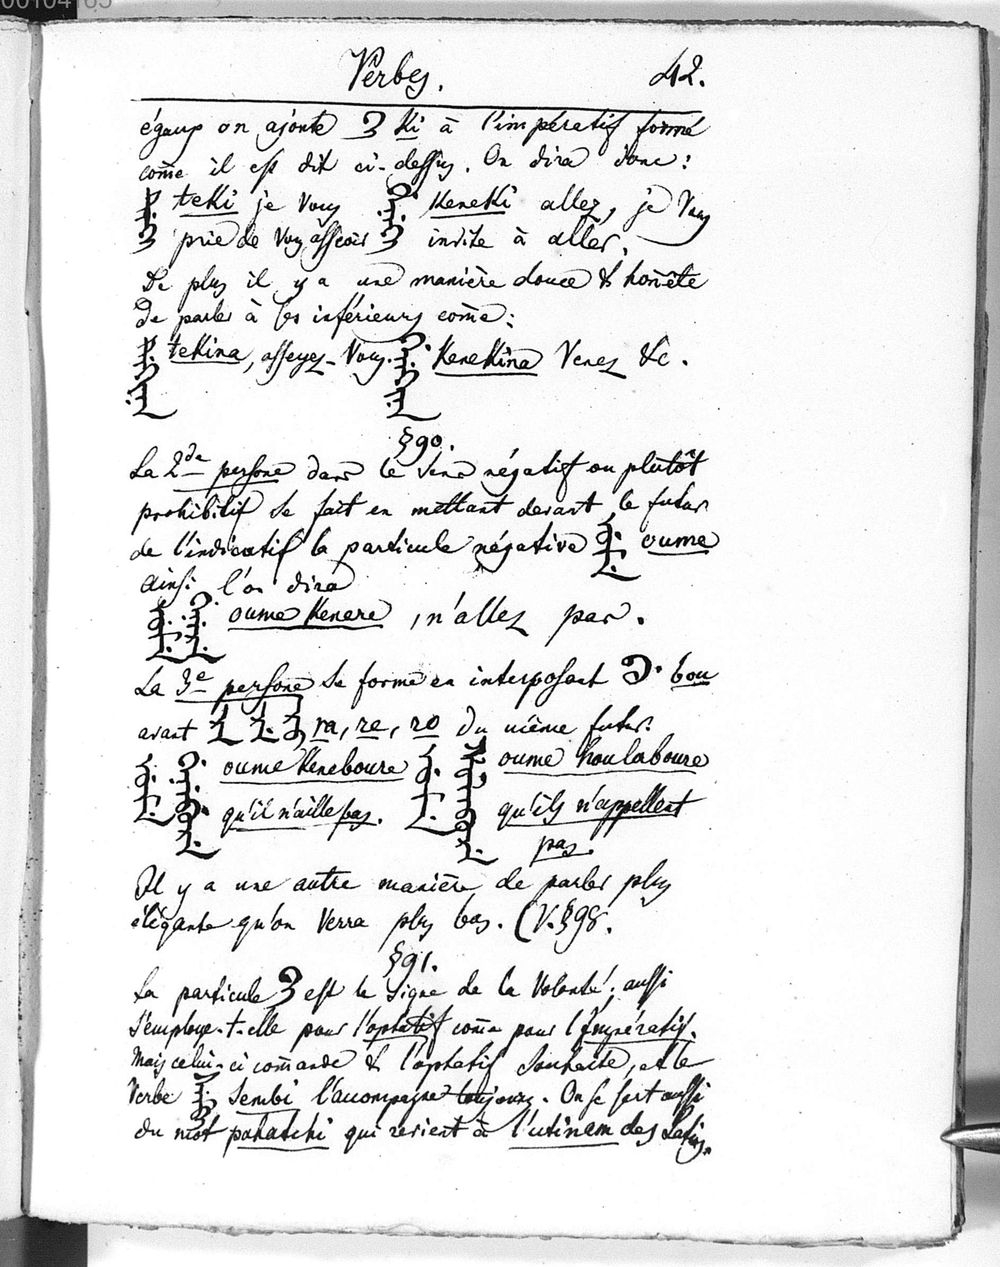 00104105
Verbes. 42.
égaux on ajoute ᡴᡳ Ki à l'impératif formé
come il est dit ci-dessus. On dira donc:
ᡨᡝᡴᡳ teKi je vous ᡤᡝᠨᡝᡴᡳ KeneKi allez, je vous
prie de vous asseoir invite à aller,
De plus il y a une manière douce & honête
de parler à ses inférieurs come:
ᡨᡝᡴᡳᠨᡳ teKina, asseyez-vous. KeneKina Venez &c.
§90.
La 2de persone dans le sens négatif ou plutôt
prohibitif se fait en mettant devant le futur
de l'indicatif la particule négative ᡠᠮᡝ oume
ainsi l'on dira
ᡠᠮᡝ ᡤᡝᠨᡝᡵᡝ oume Kenere, n'allez pas.
La 3e persone se forme en interposant ᠪᡠ bou
avant ᡵᠠ ᡵᡝ ᡵᠣ ra, re, ro du même futur.
ᡠᠮᡝ ᡤᡝᠨᡝᠪᡠᡵᡝ oume Keneboure ᡠᠮᡝ oume houlaboure
qu'il n'aille pas. qu'ils n'appellent
pas.
Il y a une autre manière de parler plus
élégante qu'on verra plus bas. (V. §98.
§91.
La particule ᡴᡳ est le signe de la volonté; aussi
s'employe-t-elle pour l'optatif come pour l'Impératif.
Mais celui-ci comande & l'optatif souhaite, et le
Verbe ᠰᡝᠮᠪᡳ Sembi l'accompagne toujours. On se sert aussi
du mot pahatchi qui revient à l'utinam des Latins.